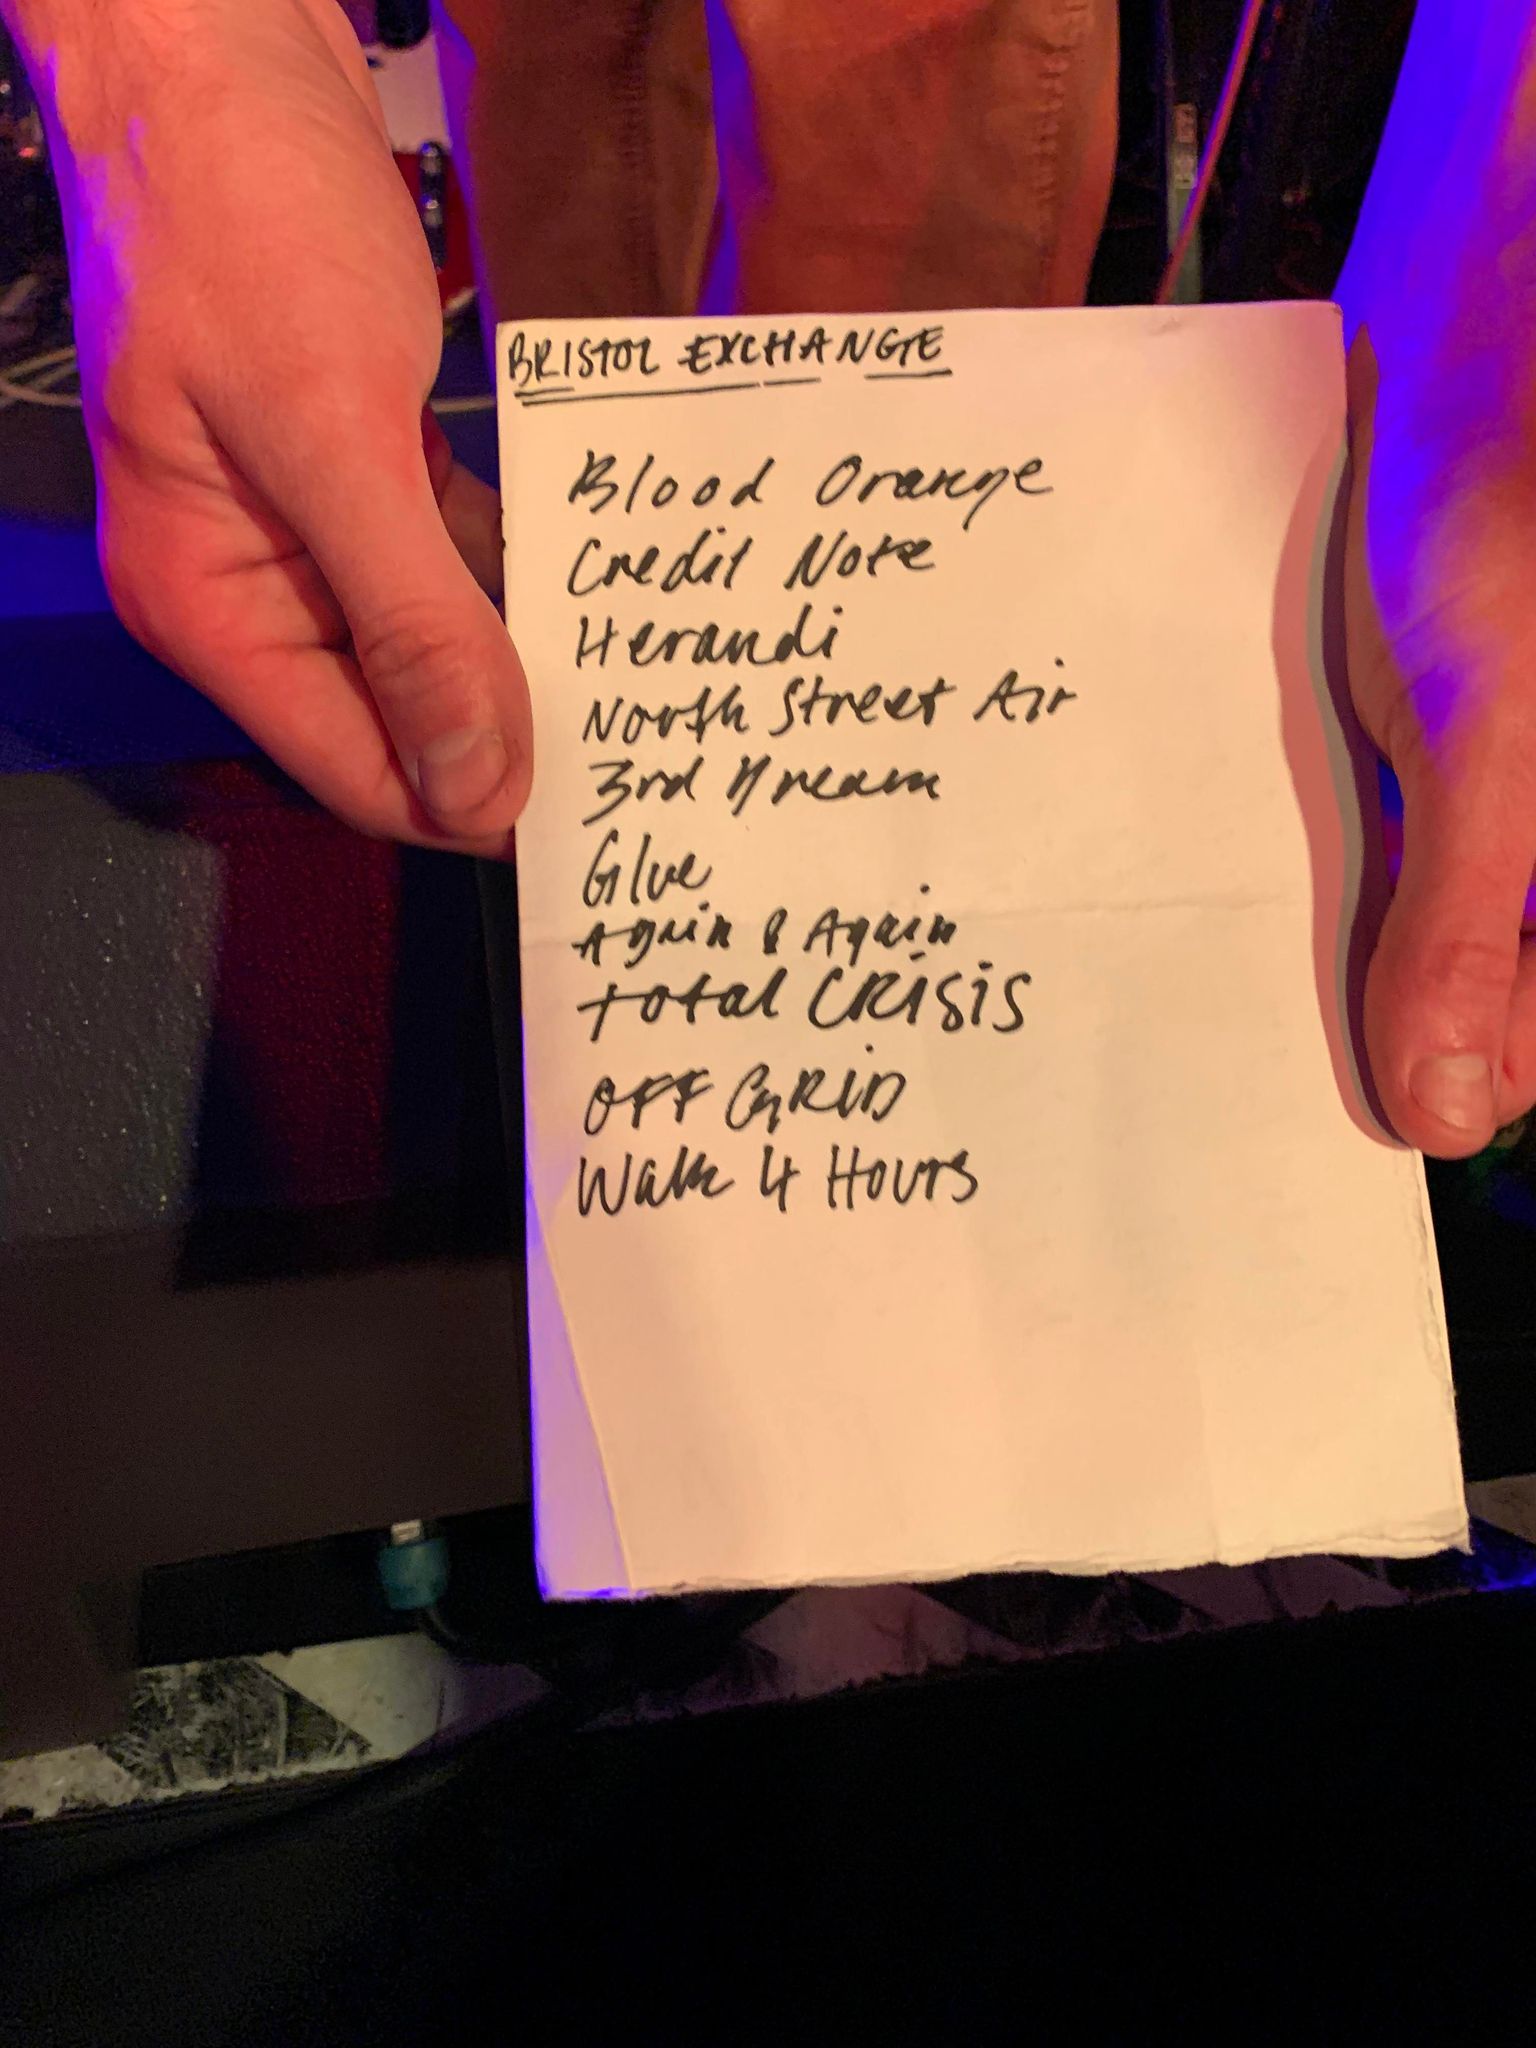 BRISTOL EXCHANGE
Blood Orange
Credit Note
Herandi
North Street Air
3rd Dream
Glue
Again & Again
total CRiSiS
OFF GRiD
Walk 4 Hours